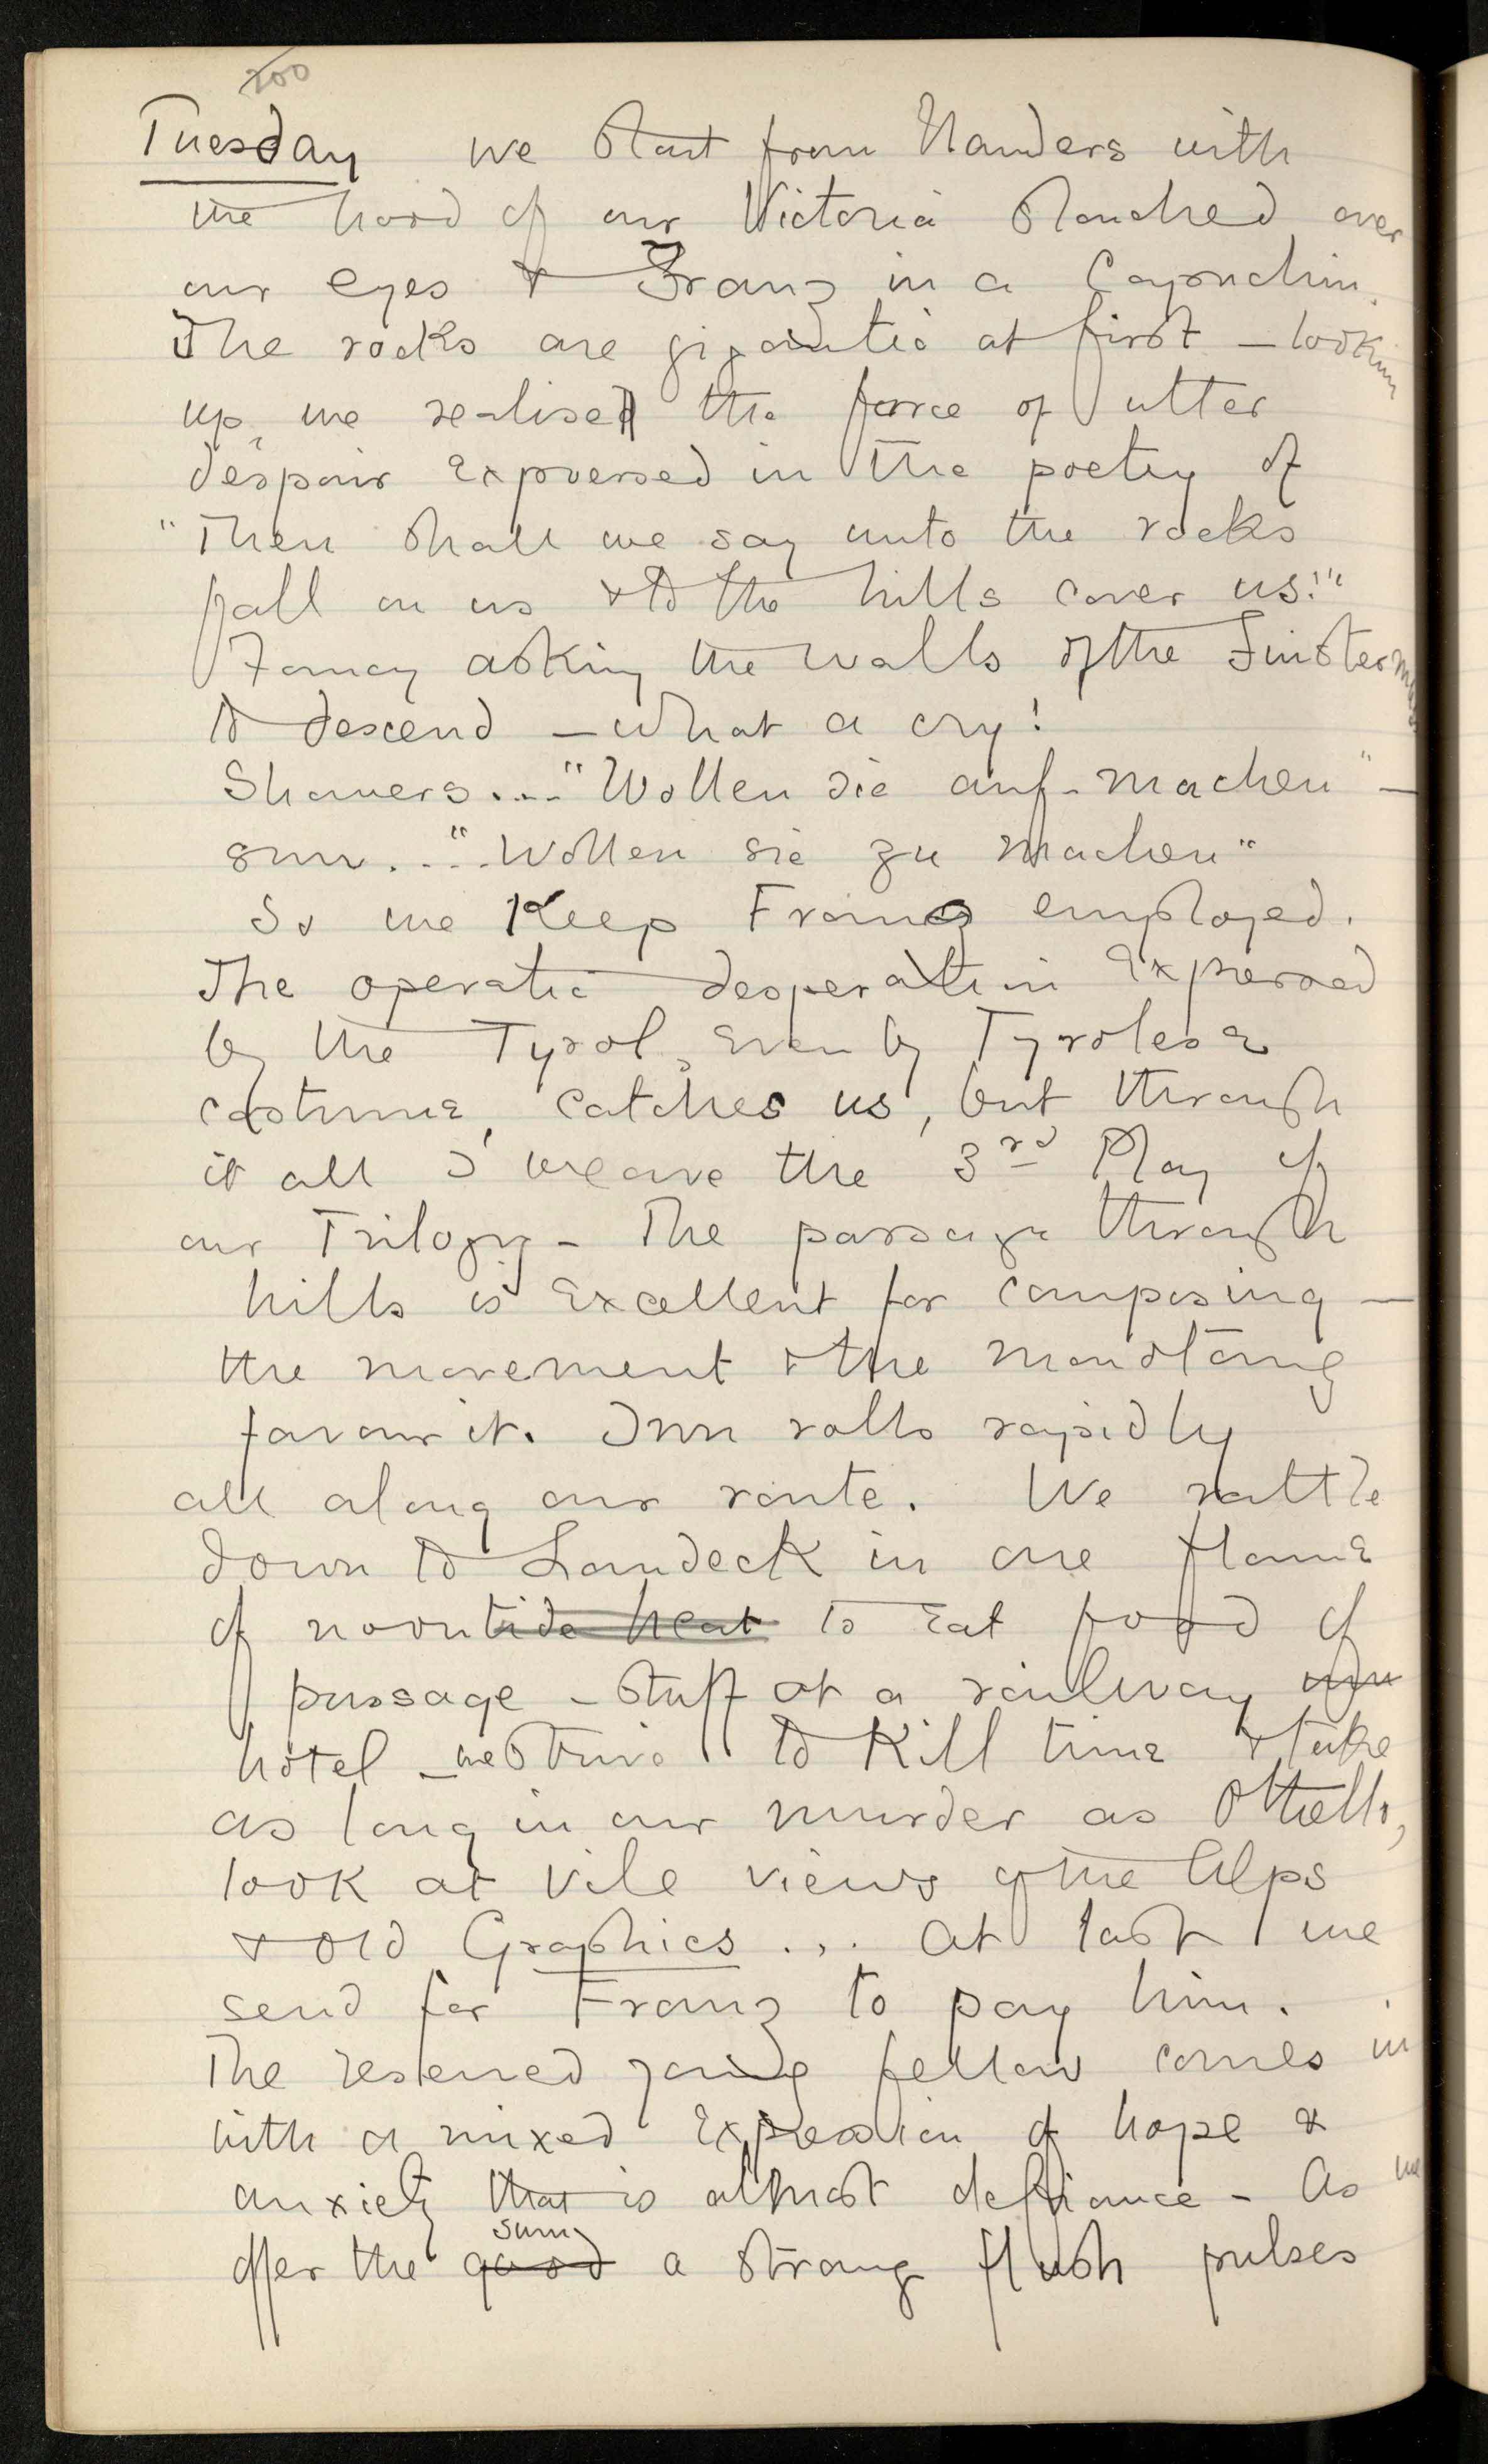 200
Tuesday we start from Nauders with
the hood of our Victoria slouched over
our eyes & Franz in a Capuchin.
The rocks are gigantic at first – looking
up, we realised the force of utter
despair expressed in the poetry of
"Then shall we say unto the rocks
fall on us & to the hills cover us!"
Fancy asking the walls of the Finstermunz
to descend – what a cry!
Showers.... "Wollen sie auf-machen" –
sun... "Wollen sie zu machen"
So we keep Franz employed.
The operatic desperation expressed
by the Tyrol, even by Tyrolese
costume, catches us, but through
it all I weave the 3rd Play of
our Trilogy – The passage through
hills is excellent for composing –
the movement & the monotony
favour it. Inn rolls rapidly
all along our route. We rattle
down to Landeck in one flame
of noontide heat to eat food of
passage – stuff at a railway
hotel – we strive to kill time & take
as long in our murder as Othello,
look at vile views of the Alps
& old Graphics ... At last we
send for Franz to pay him.
The reserved young fellow comes in
with a mixed expression of hope &
anxiety that is almost defiance – As we
sum
offer the good a strong flush pulses